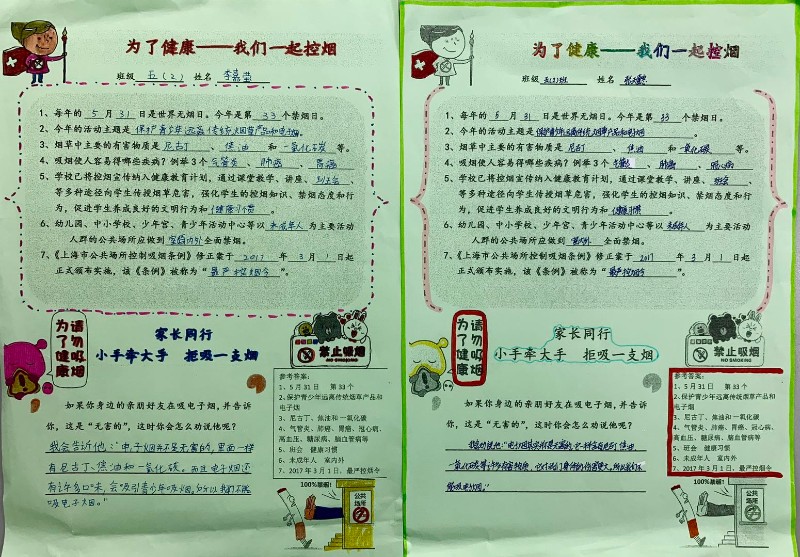 为了健康——我们一起控烟
班级 五（2） 姓名 李嘉莹
1、每年的 5 月 31 日是世界无烟日。今年是第 33 个禁烟日。
2、今年的活动主题是 保护青少年远离传统烟草产品和电子烟。
3、烟草中主要的有害物质是 尼古丁 、 焦油 和 一氧化碳 等。
4、吸烟使人容易得哪些疾病？例举3个 气管炎 、 肺癌 、 胃癌
5、学校已将控烟宣传纳入健康教育计划，通过课堂教学、讲座、
等多种途径向学生传授烟草危害，强化学生的控烟知识、禁烟态度和行
为，促进学生养成良好的文明行为和 健康习惯 。
6、幼儿园、中小学校、少年宫、青少年活动中心等以 未成年人 为主要活动
人群的公共场所应做到 室内外 全面禁烟。
7、《上海市公共场所控制吸烟条例》修正案于 2017 年 3 月 1 日起
正式颁布实施，该《条例》被称为“ 最严控烟令 ”。
请勿吸烟
为了健康
家长同行
小手牵大手 拒吸一支烟
禁止吸烟
NO SMOKING
如果你身边的亲朋好友在吸电子烟，并告诉
你，这是“无害的”，这时你会怎么劝说他呢？
我会告诉他：“电子烟并不是无害的，里面一样
有尼古丁、焦油和一氧化碳。而且电子烟还
有许多口味，会吸引青少年吸烟。所以我们不能
吸电子烟。”
参考答案：
1、5月31日 第33个
2、保护青少年远离传统烟草产品和
电子烟
3、尼古丁、焦油和一氧化碳
4、气管炎、肺癌、胃癌、冠心病、
高血压、糖尿病、脑血管病等
5、班会 健康习惯
6、未成年人 室内外
7、2017年3月1日、最严控烟令
100%禁烟！
公共场所
为了健康——我们一起控烟
班级 五(2)班 姓名
1、每年的 5 月 31 日是世界无烟日。今年是第 33 个禁烟日。
2、今年的活动主题是 保护青少年远离传统烟草产品和电子烟 。
3、烟草中主要的有害物质是 尼古丁 、 焦油 和 一氧化碳 等。
4、吸烟使人容易得哪些疾病？例举3个 、 肺癌 、 冠心病
5、学校已将控烟宣传纳入健康教育计划，通过课堂教学、讲座、 班会 、
等多种途径向学生传授烟草危害，强化学生的控烟知识、禁烟态度和行
为，促进学生养成良好的文明行为和 健康习惯 。
6、幼儿园、中小学校、少年宫、青少年活动中心等以 未成年人 为主要活动
人群的公共场所应做到 室内外 全面禁烟。
7、《上海市公共场所控制吸烟条例》修正案于 2017 年 3 月 1 日起
正式颁布实施，该《条例》被称为“ 最严控烟令 ”。
请勿吸烟
为了健康
家长同行
小手牵大手 拒吸一支烟
禁止吸烟
NO SMOKING
如果你身边的亲朋好友在吸电子烟，并告诉
你，这是“无害的”，这时你会怎么劝说他呢？
参考答案：
1、5月31日 第33个
2、保护青少年远离传统烟草产品和
电子烟
3、尼古丁、焦油和一氧化碳
4、气管炎、肺癌、胃癌、冠心病、
高血压、糖尿病、脑血管病等
5、班会 健康习惯
6、未成年人 室内外
7、2017年3月1日、最严控烟令
100%禁烟！
公共场所